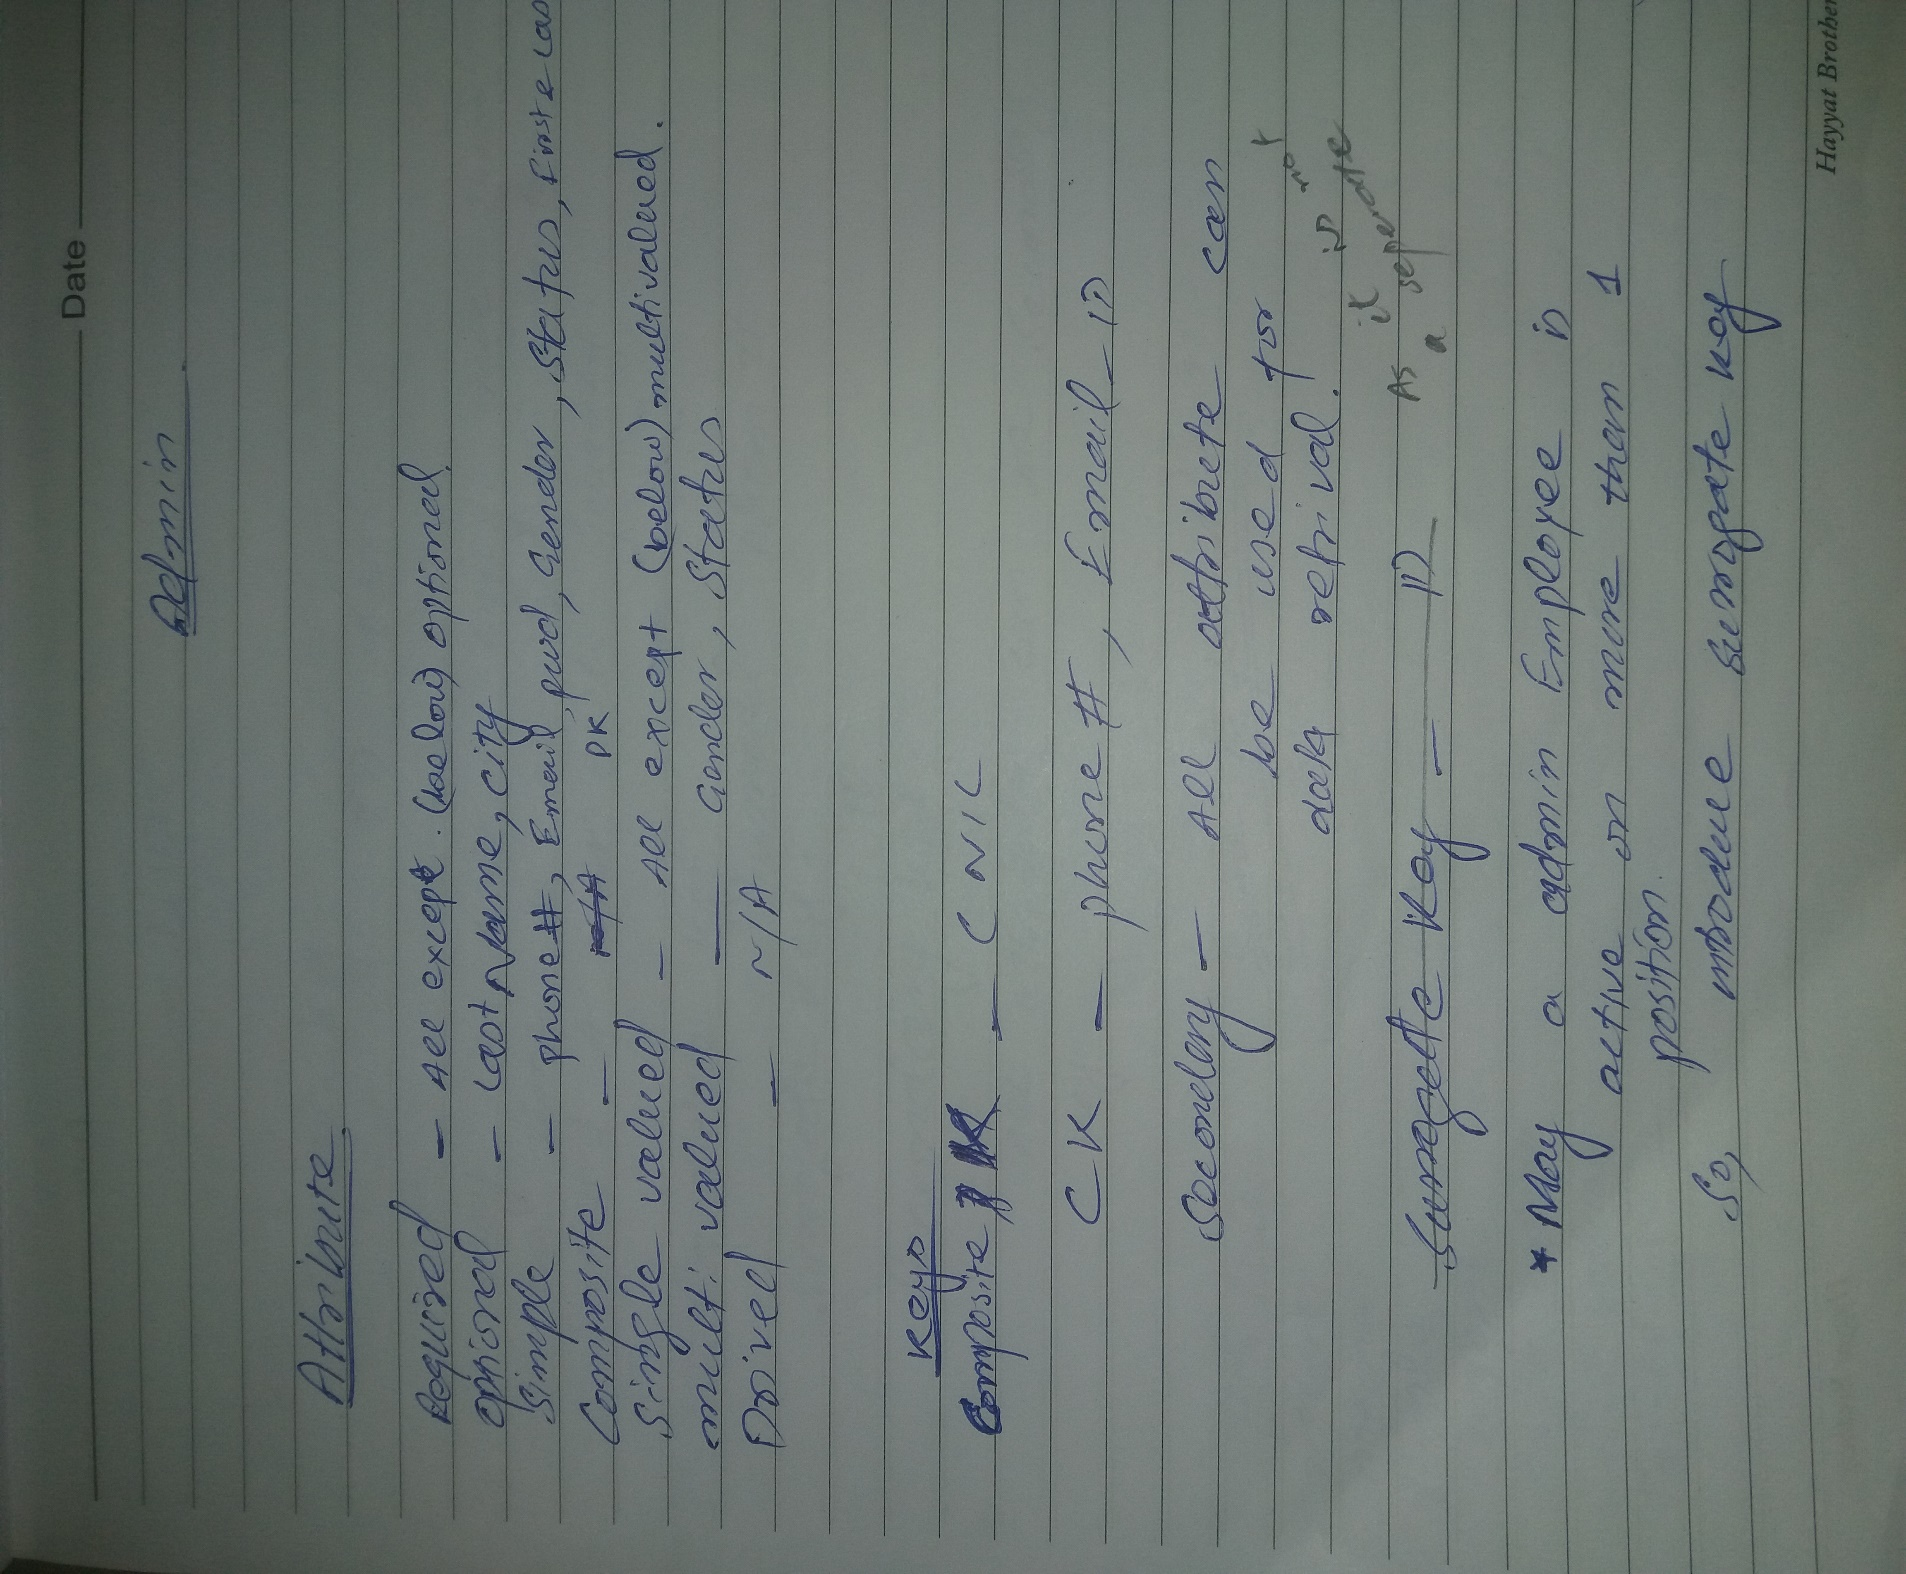 Date
Admin
Attribute
Required — All except (below) optional.
optional — Last Name, city
Simple — phone#, Email, pwd, Gender, Status, First & Las
Composite — N/A PK
Single valued — All except (below) multivalued.
multi valued — Gender, Status
Drived — N/A
Keys
Composite — CNIC
CK — phone #, Email_ID
Secondery — All attribute can
be used for
data retrival.
not
is
it
As a seperate
Surrogate Key — ID
* May a admin Employee is
active on more than 1
position.
So, introduce surrogate key
Hayyat Brother